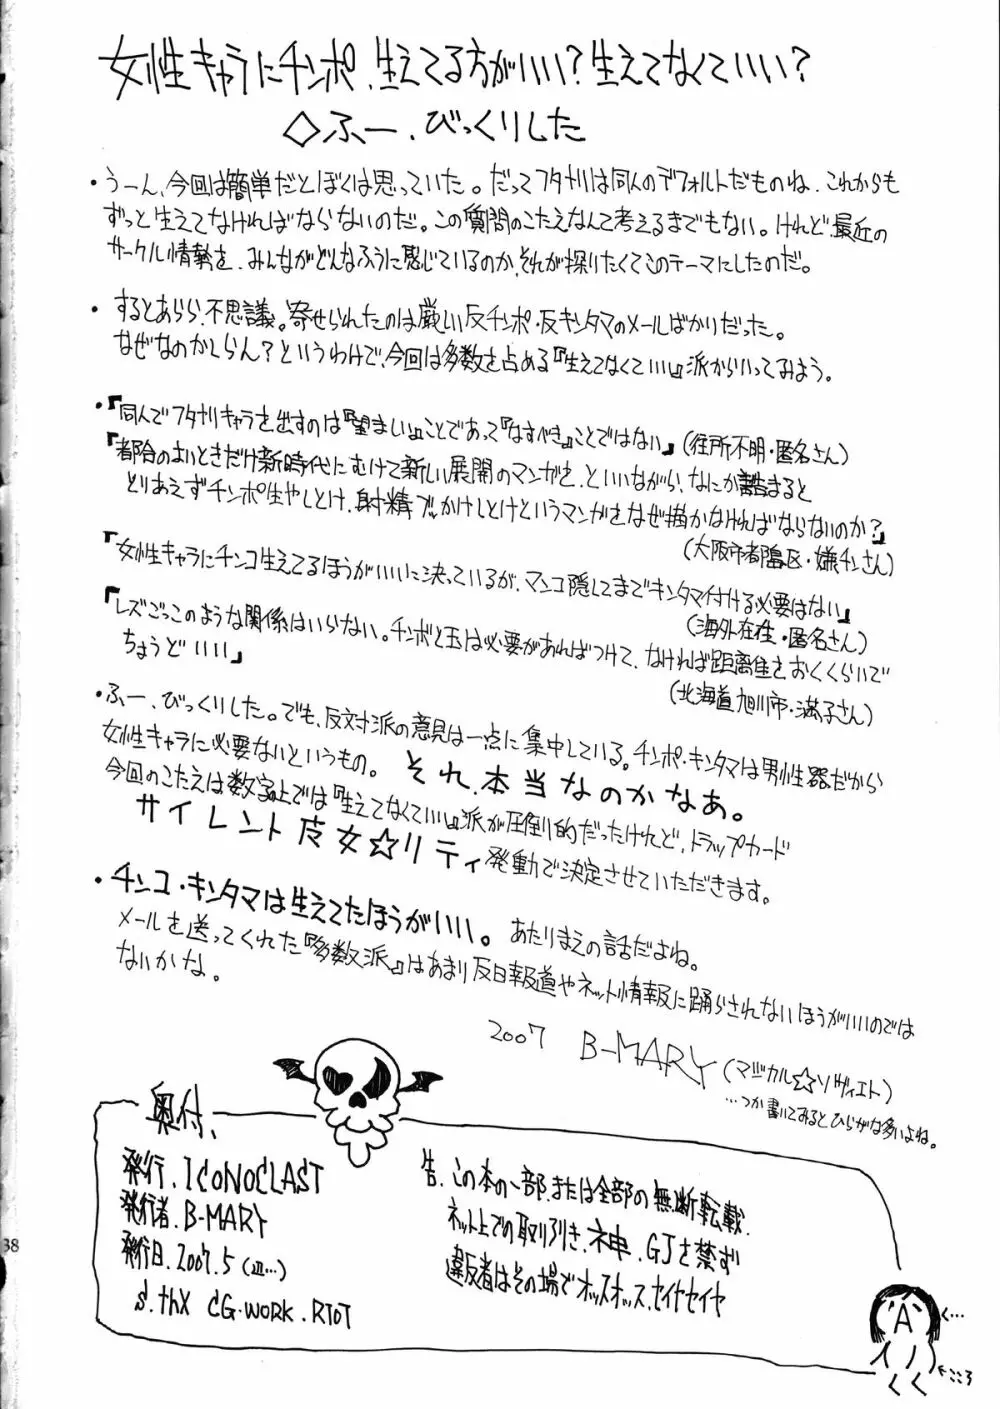 女性キャラにチンポ、生えてる方がいい?生えてなくていい?
◇ふー、びっくりした
・うーん、今回は簡単だとぼくは思っていた。だってフタナリは同人のデフォルトだものね、これからも
ずっと生えてなければならないのだ。この質問のこたえなんて考えるまでもない。けれど、最近の
サークル情勢を、みんながどんなふうに感じているのか、それが探りたくてこのテーマにしたのだ。
・するとあらら、不思議。寄せられたのは厳しい反チンポ・反キンタマのメールばかりだった。
なぜなのかしらん?というわけで、今回は多数を占める『生えてなくていい』派からいってみよう。
・『同人でフタナリキャラを出すのは『望ましい』ことであって『なすべき』ことではない』(住所不明・匿名さん)
『都合のよいときだけ新時代にむけて新しい展開のマンガを、といいながら、なにか詰まると
とりあえずチンポ生やしとけ、射精でぶっかけしとけというマンガをなぜ描かなければならないのか?』
(大阪市都島区・嫌チンさん)
『女性キャラにチンコ生えてるほうがいいに決っているが、マンコ隠してまでキンタマ付ける必要はない』
(海外在住・匿名さん)
『レズごっこのような関係はいらない。チンポと玉は必要があればつけて、なければ距離をおくくらいで
ちょうどいい』
(北海道旭川市・満子さん)
・ふー、びっくりした。でも、反対派の意見は一点に集中している。チンポ・キンタマは男性器だから
女性キャラに必要ないというもの。それ、本当なのかなあ。
今回のこたえは数字上では『生えてなくていい』派が圧倒的だったけれど、トラップカード
サイレント皮女☆リティ発動で決定させていただきます。
・チンコ・キンタマは生えてたほうがいい。あたりまえの話だよね。
メールを送ってくれた『多数派』はあまり反日報道やネット情報に踊らされないほうがいいのでは
ないかな。
2007 B-MARY(マジカル☆ソヴィエト)
…つか書いてみるとひらがな多いよね。
奥付、
発行.ICONOCLAST
発行者.B-MARY
発行日.2007.5
S.thX CG-WORK.RTOT
告.この本の一部、または全部の無断転載、
ネット上での取り引き、ネ申、GJを禁ず
違反者はその場でオッスオッス、セイヤセイヤ
く…
A
←こころ
38